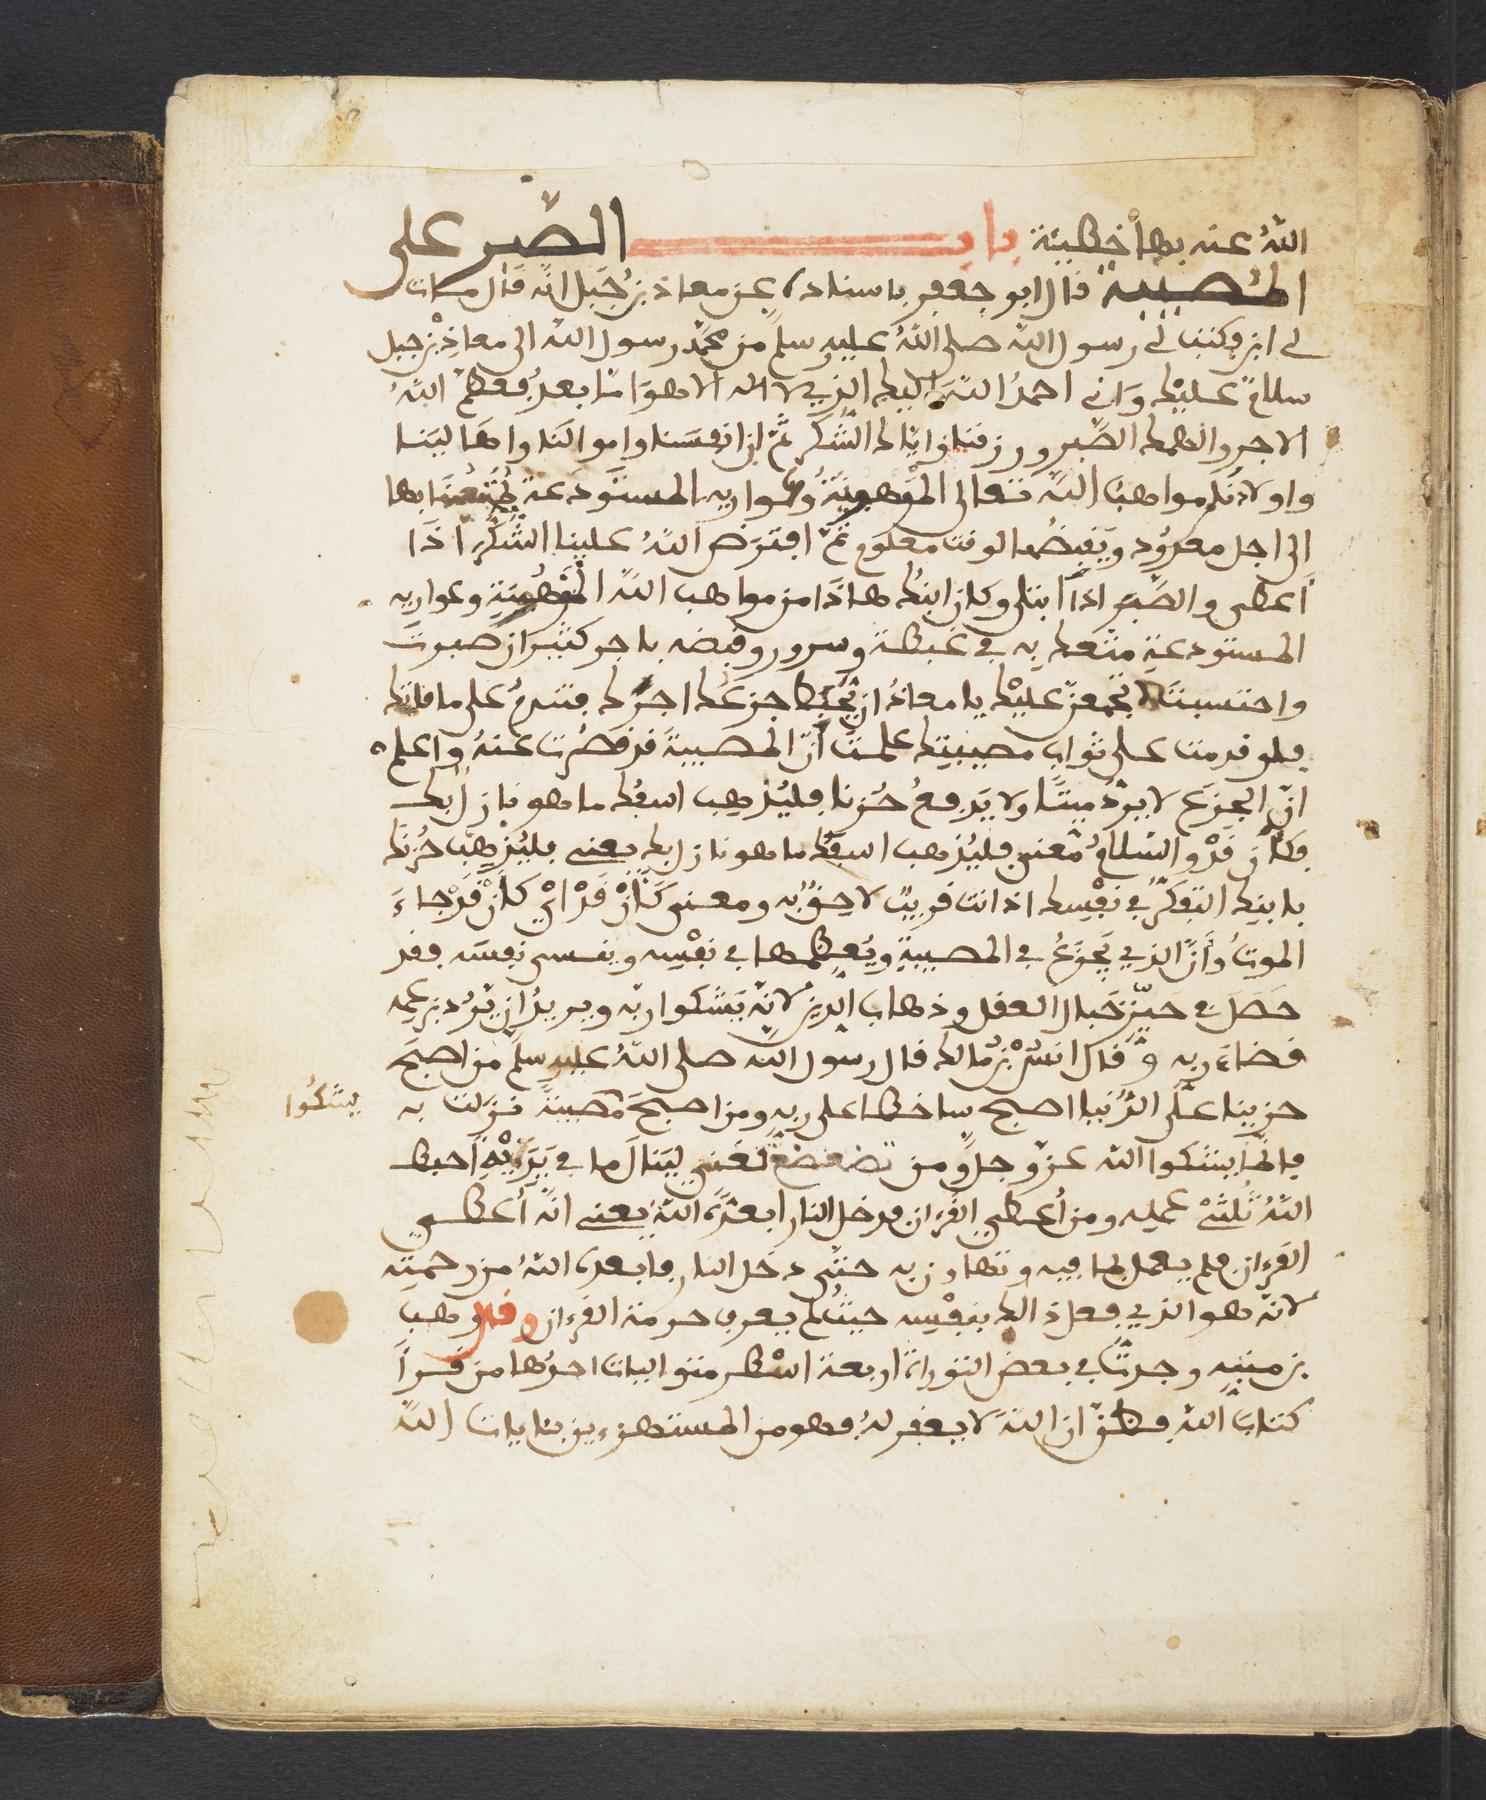 الله عنه بها خطيئة باب الصبر على
المصيبة قال ابو جعفر باسناده عن معاذ بن جبل انه قال مات
لي ابن فكتب لي رسول الله صلى الله عليه وسلم من محمد رسول الله الى معاذ بن جبل
سلام عليك واني احمد الله اليك الذي لا اله الا هو اما بعد فعظم الله
الاجر والهمك الصبر ورزقنا واياك الشكر ثم ان انفسنا واموالنا واهالينا
واولادنا مواهب الله تعالى الموهوبة وعواريه المستودعة يمتعنا بها
الى اجل معدود ويقبضها لوقت معلوم ثم افترض الله علينا الشكر اذا
اعطى والصبر اذا ابتلى وكان ابنك هاذا من مواهب الله الموهوبة وعواريه
المستودعة متعك به في غبطة وسرور وقبضه باجر كثير ان صبرت
واحتسبت فلا يجمعن عليك يا معاذ ان يحبط جزعك اجرك فتندم على ما فاتك
فلو قدمت على ثواب مصيبتك علمت ان المصيبة قد قصرت عنه واعلم
ان الجزع لا يرد ميتا ولا يدفع حزنا فليذهب اسفك ما هو نازل بك
فكان قد والسلام معنى فليذهب اسفك ما هو نازل بك يعني فليذهب حزنك
بابنك التفكر في نفسك اذ انت قريب لاحق به ومعنى كان قد اي كان قد جاء
الموت وان الذي يجزع في المصيبة ويعظمها في نفسه وينسى نفسه فقد
حصل في حيز خبال العقل وذهاب الدين لانه يشكوا ربه ويريد ان يرد بزعمه
قضاء ربه وقال انس بن مالك قال رسول الله صلى الله عليه وسلم من اصبح
حزينا على الدنيا اصبح ساخطا على ربه ومن اصبح مصيبة نزلت به
يشكوا
فانما يشكوا الله عز وجل ومن تضعضع لغني لينال ما في يديه احبط
الله ثلثي عمله ومن أعطي القرءان فدخل النار ابعده الله يعني انه أعطي
القرءان فلم يعمل بما فيه وتهاون به حتى دخل النار فابعده الله من رحمته
لانه هو الذي فعل ذالك بنفسه حيث لم يعرف حرمة القرءان وقال وهب
بن منبه وجدت في بعض التوراة اربعة اسطر متواليات احدها من قرأ
كتاب الله فظن ان الله لا يغفر له فهو من المستهزءين بئايات الله